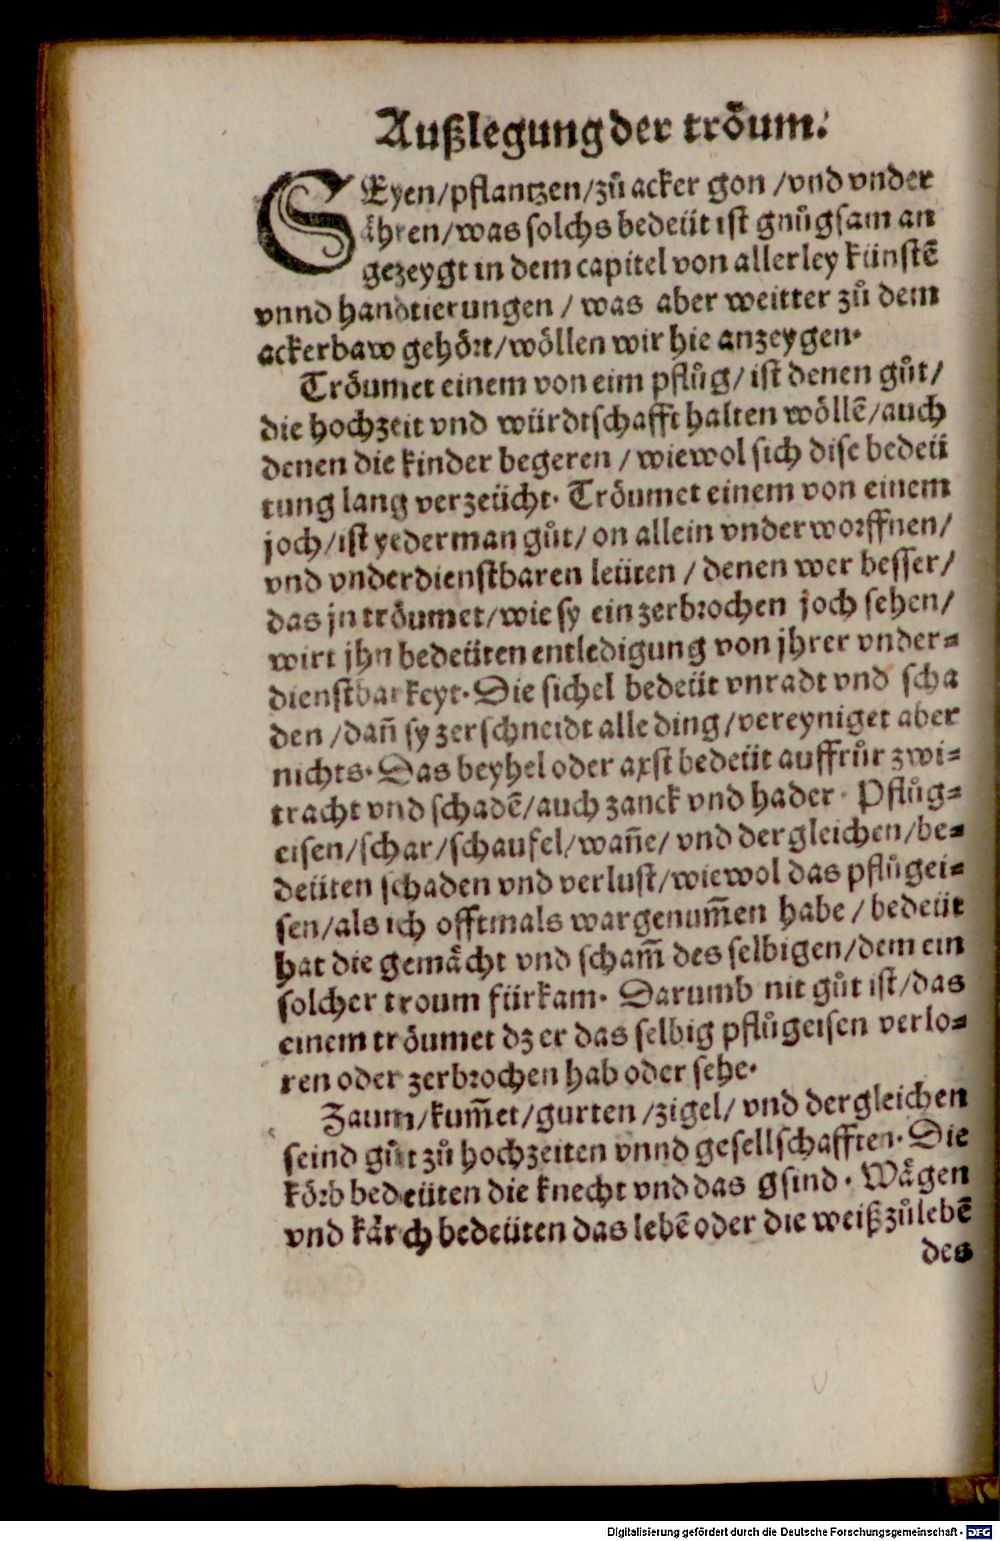 Außlegung der tröum.
SEyen/pflantzen/zů acker gon/vnd vnder
ähren/was solchs bedeüt ist gnůgsam an
gezeygt in dem capitel von allerley künstē
vnnd handtierungen / was aber weitter zů dem
ackerbaw gehört/wöllen wir hie anzeygen.
Tröumet einem von eim pflůg/ist denen gůt/
die hochzeit vnd würdtschafft halten wöllē/auch
denen die kinder begeren / wiewol sich dise bedeü
tung lang verzeücht. Tröumet einem von einem
joch/ist yederman gůt/on allein vnderworffnen/
vnd vnderdienstbaren leüten / denen wer besser/
das jn tröumet/wie sy ein zerbrochen joch sehen/
wirt jhn bedeüten entledigung von jhrer vnder-
dienstbarkeyt. Die sichel bedeüt vnradt vnd scha
den /dañ sy zerschneidt alle ding/vereyniget aber
nichts. Das beyhel oder axst bedeüt auffrůr zwi-
tracht vnd schadē/auch zanck vnd hader. Pflůg-
eisen/schar/schaufel/wañe/ vnd dergleichen/be-
deüten schaden vnd verlust/wiewol das pflůgei-
sen/als ich offtmals wargenum̄en habe / bedeüt
hat die gemächt vnd scham̄ des selbigen/dem ein
solcher troum fürkam. Darumb nit gůt ist/das
einem tröumet dz er das selbig pflůgeisen verlo-
ren oder zerbrochen hab oder sehe.
Zaum/kum̄et/gurten /zigel/ vnd dergleichen
seind gůt zů hochzeiten vnnd gesellschafften. Die
körb bedeüten die knecht vnd das gsind. Wägen
vnd kärch bedeüten das lebē oder die weiß zůlebē
des
Digitalisierung gefördert durch die Deutsche Forschungsgemeinschaft - DFG